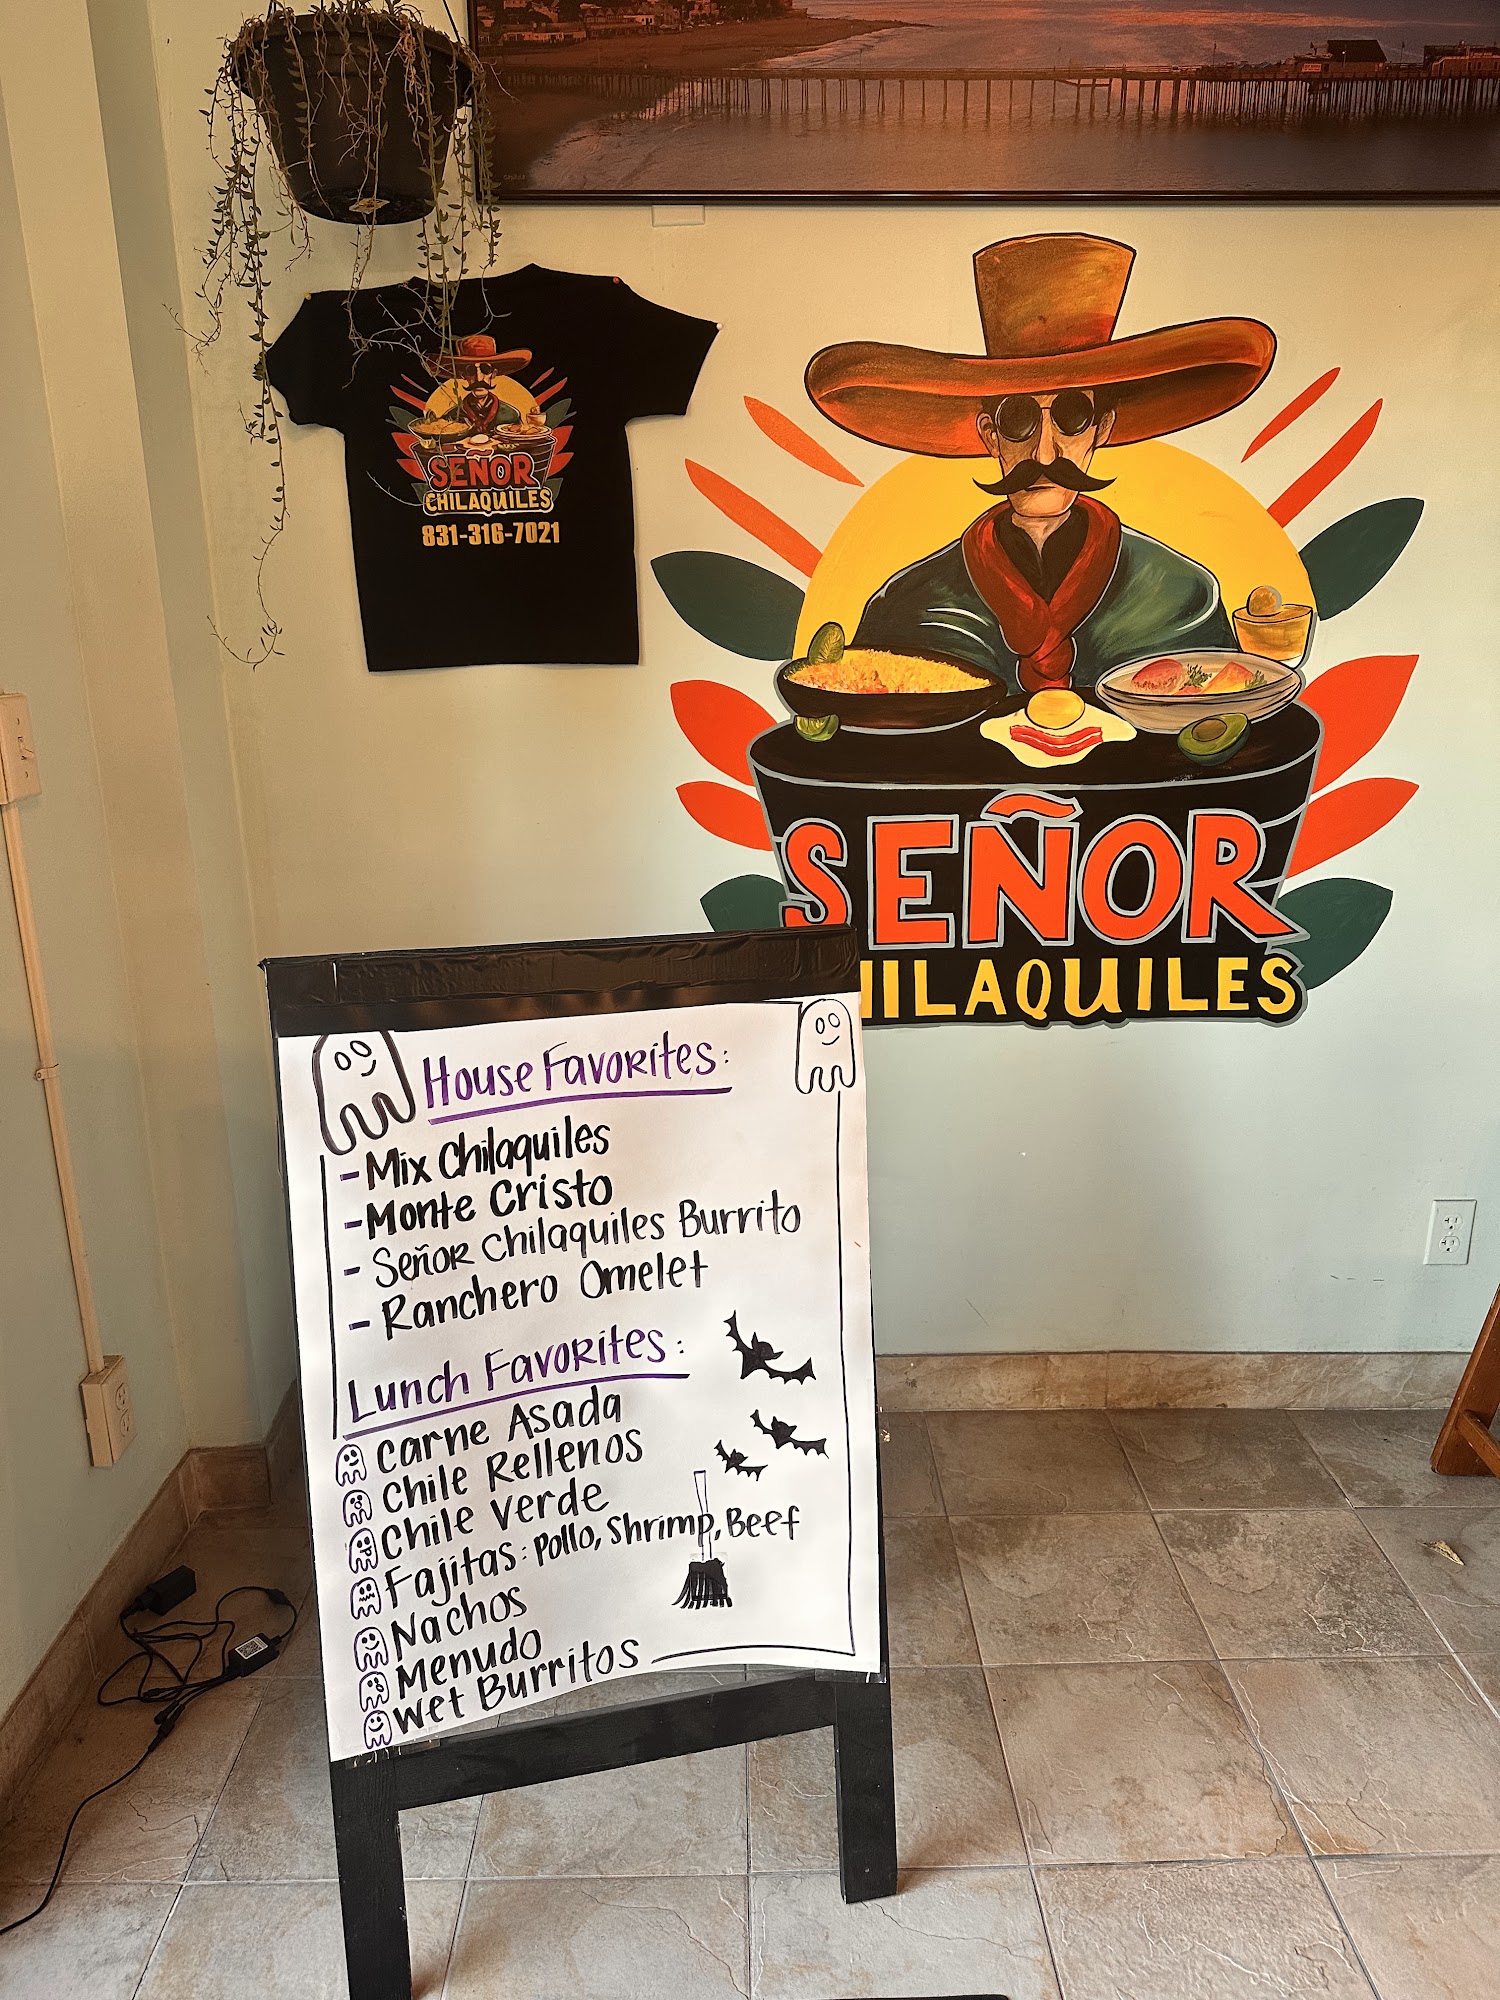 SEÑOR
CHILAQUILES
831-316-7021
SEÑOR
HILAQUILES
House Favorites:
- Mix Chilaquiles
- Monte Cristo
- Señor Chilaquiles Burrito
- Ranchero Omelet
Lunch Favorites:
Carne Asada
Chile Rellenos
Chile Verde
Fajitas: Pollo, Shrimp, Beef
Nachos
Menudo
Wet Burritos